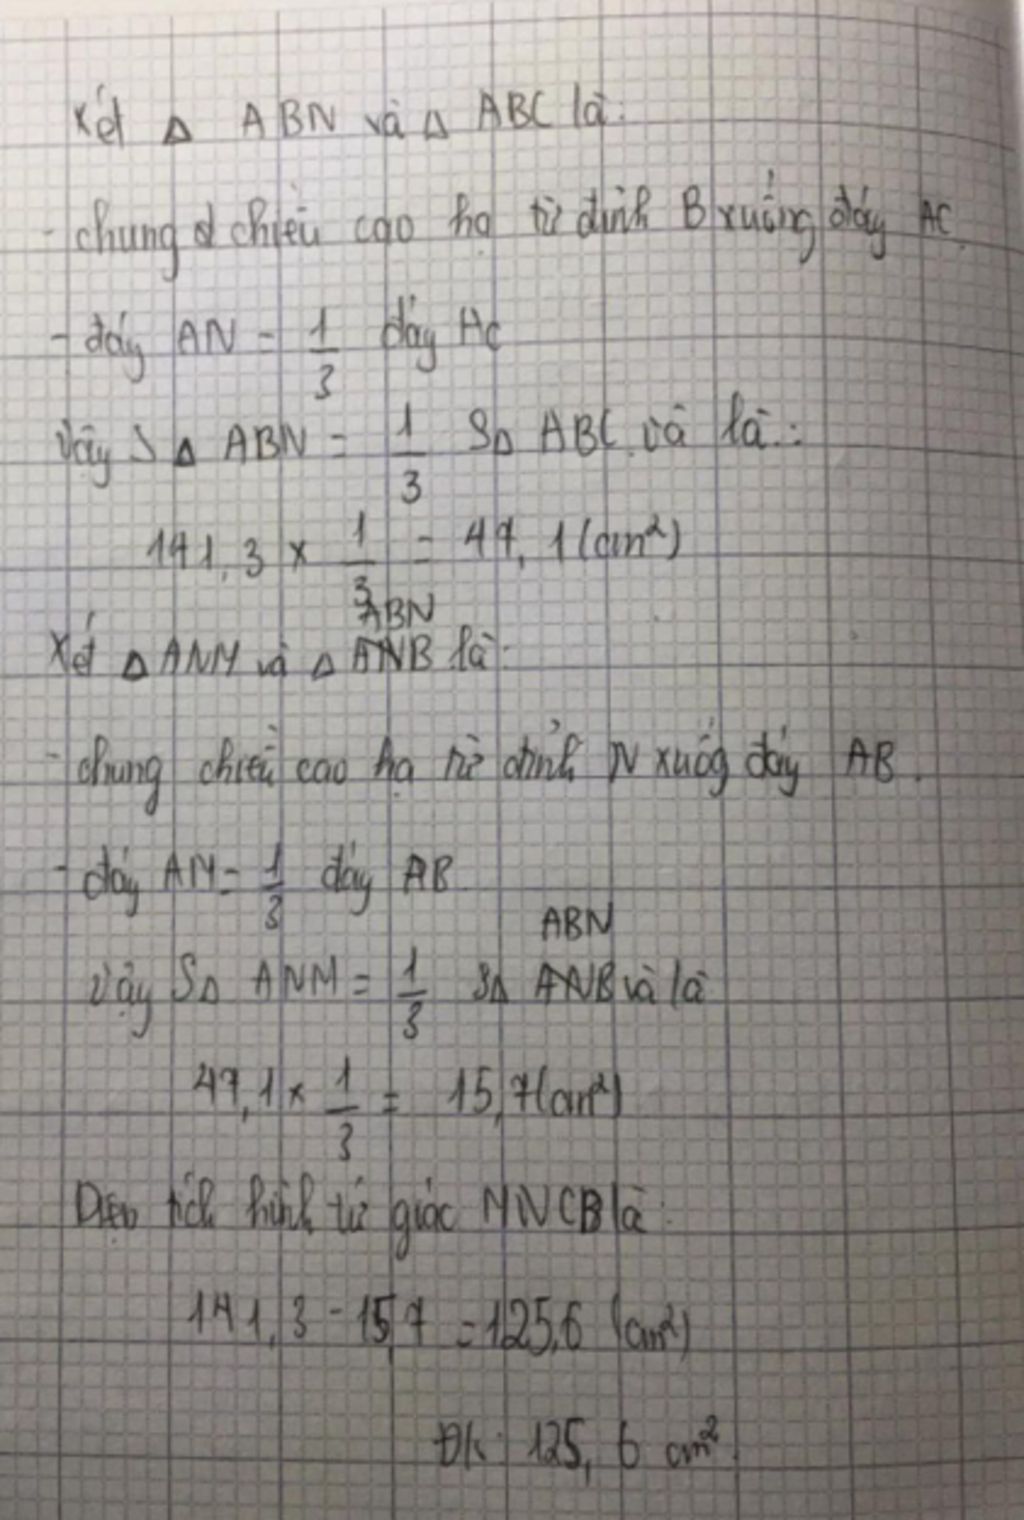 Xét Δ ABN và Δ ABC là:
- chung chiều cao hạ từ đỉnh B xuống đáy AC
- đáy AN = 1/3 đáy AC
Vậy S Δ ABN = 1/3 SΔ ABC và là:
141,3 x 1/3 = 47,1 (cm²)
ABN
Xét Δ ANM và Δ ANB là:
- chung chiều cao hạ từ đỉnh N xuốg đáy AB.
- đáy AM = 1/3 đáy AB
ABN
Vậy SΔ ANM = 1/3 SΔ ANB và là
47,1 x 1/3 = 15,7 (cm²)
Diện tích hình tứ giác MNCB là:
141,3 - 15,7 = 125,6 (cm²)
ĐS: 125,6 cm²